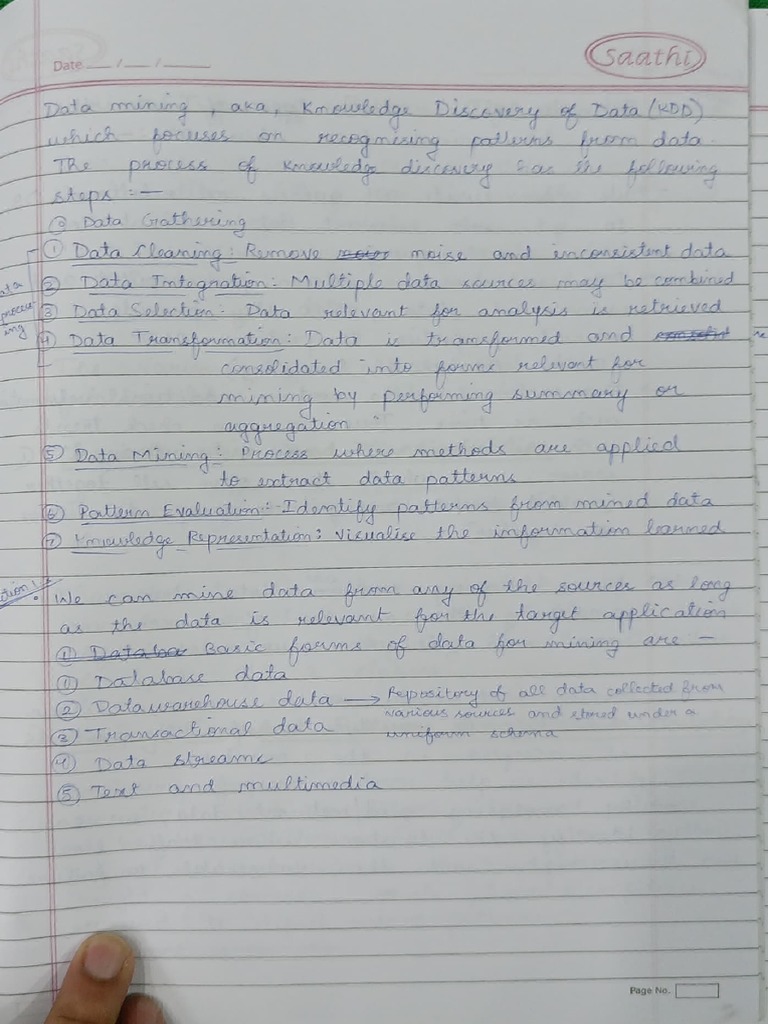 Date __/__/____
Saathi
Data mining, aka, Knowledge Discovery of Data (KDD)
which focuses on recognising patterns from data.
The process of knowledge discovery has the following
steps :—
⓪ Data Gathering
① Data Cleaning: Remove noise and inconsistent data
② Data Integration: Multiple data sources may be combined
③ Data Selection: Data relevant for analysis is retrieved
④ Data Transformation: Data is transformed and
consolidated into forms relevant for
mining by performing summary or
aggregation
⑤ Data Mining: Process where methods are applied
to extract data patterns
⑥ Pattern Evaluation: Identify patterns from mined data
⑦ Knowledge Representation: Visualise the information learned
We can mine data from any of the sources as long
as the data is relevant for the target application
Basic forms of data for mining are —
① Database data
② Datawarehouse data → Repository of all data collected from
various sources and stored under a
uniform schema
③ Transactional data
④ Data streams
⑤ Text and multimedia
Page No.